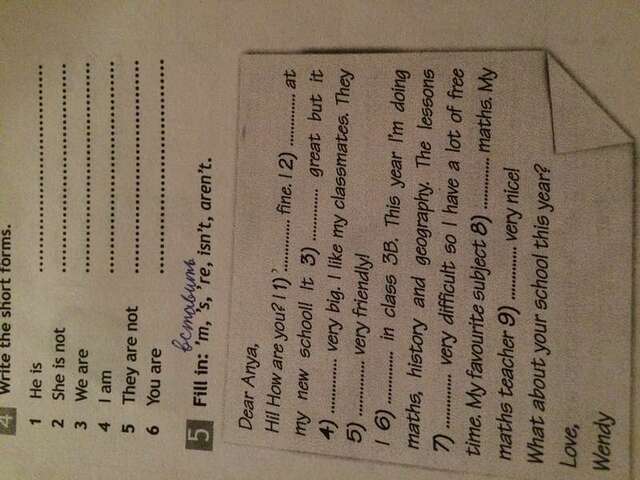 4 Write the short forms.
1 He is ........................................
2 She is not ........................................
3 We are ........................................
4 I am ........................................
5 They are not ........................................
6 You are ........................................
вставить
5 Fill in: 'm, 's, 're, isn't, aren't.
Dear Anya,
Hi! How are you? I 1) '............. fine. I 2) ............. at
my new school! It 3) ............. great but it
4) ............. very big. I like my classmates. They
5) ............. very friendly!
I 6) ............. in class 3B. This year I'm doing
maths, history and geography. The lessons
7) ............. very difficult so I have a lot of free
time. My favourite subject 8) ............. maths. My
maths teacher 9) ............. very nice!
What about your school this year?
Love,
Wendy